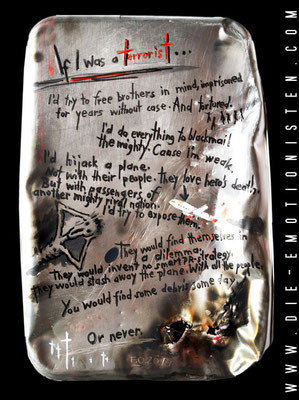 If I was a terrorist...
I'd try to free brothers in mind, imprisoned
for years without case. And tortured.
I'd do everything to blackmail
the mighty. Cause I'm weak.
I'd hijack a plane.
Not with their people. they love heros death!
But with passengers of
another mighty rival nation.
I'd try to expose them.
They would find themselves in
a dilemma.
They would invent no smarter strategy.
They would stash away the plane. With all the people.
You would find some debris some day.
Or never.
WWW.DIE-EMOTIONISTEN.COM